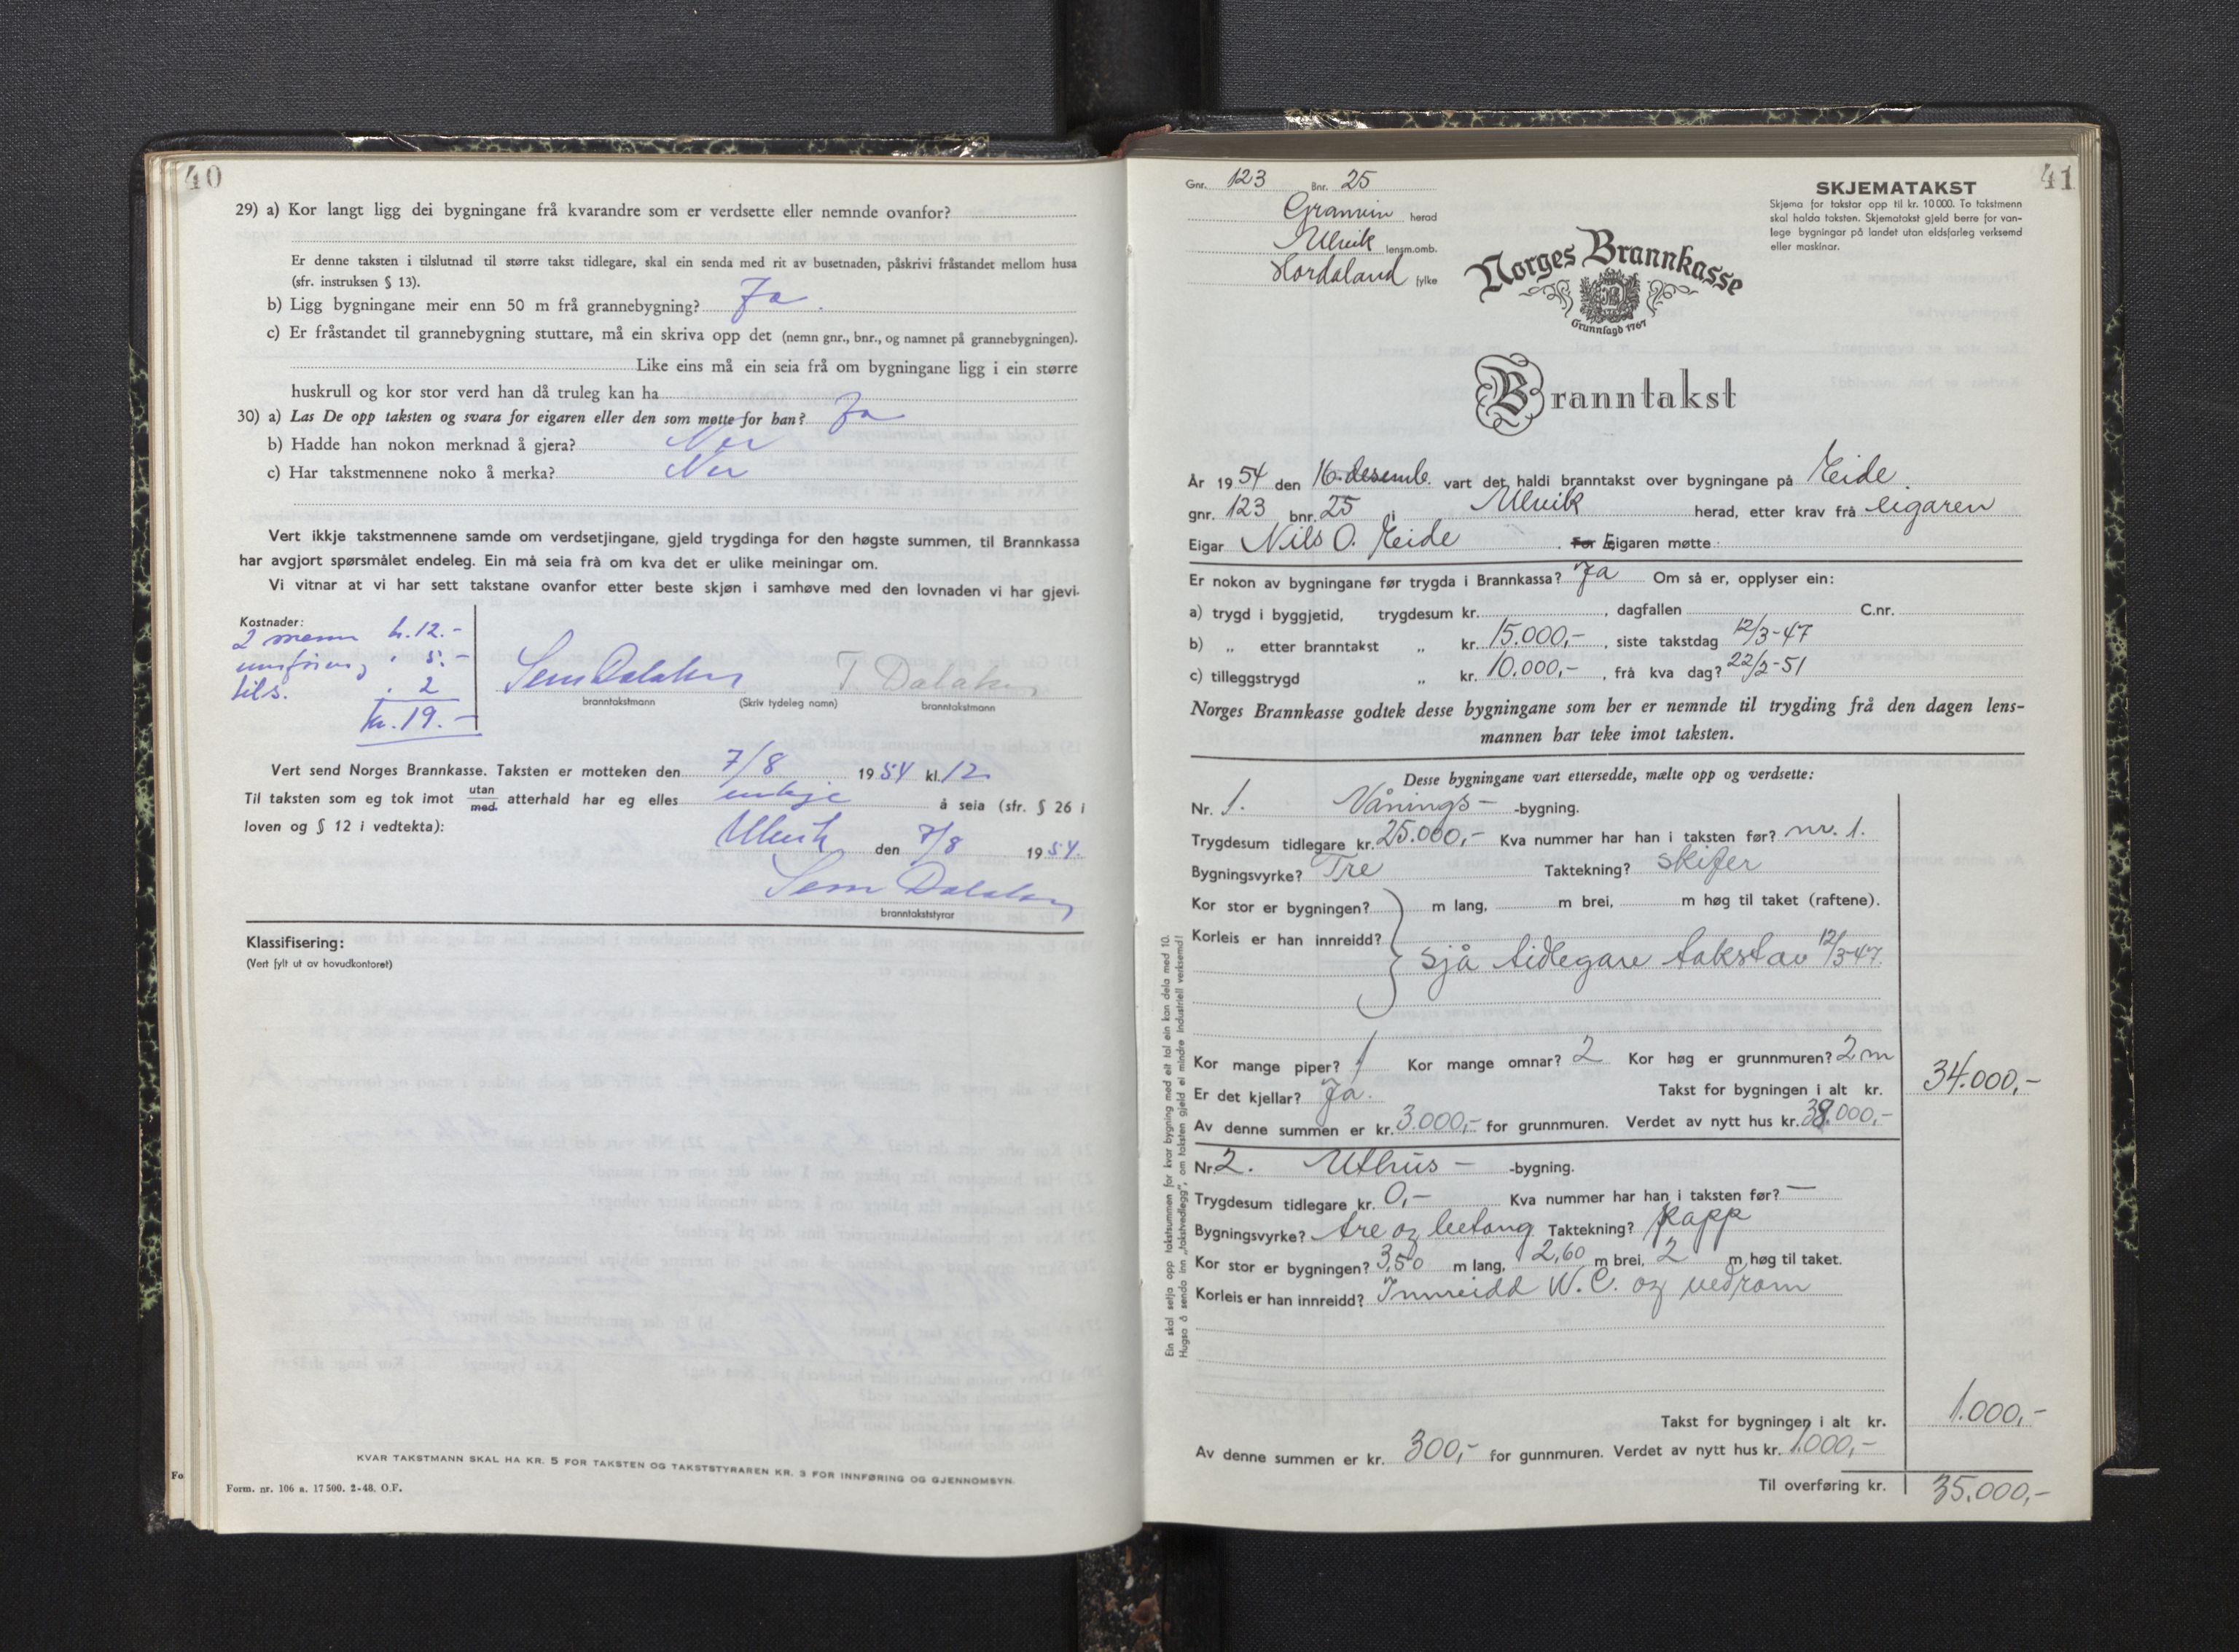 40
29) a) Kor langt ligg dei bygningane frå kvarandre som er verdsette eller nemnde ovanfor?
Er denne taksten i tilslutnad til større takst tidlegare, skal ein senda med rit av busetnaden, påskrivi fråstandet mellom husa
(sfr. instruksen § 13).
b) Ligg bygningane meir enn 50 m frå grannebygning? Ja.
c) Er fråstandet til grannebygning stuttare, må ein skriva opp det (nemn gnr., bnr., og namnet på grannebygningen).
Like eins må ein seia frå om bygningane ligg i ein større
huskrull og kor stor verd han då truleg kan ha
30) a) Las De opp taksten og svara for eigaren eller den som møtte for han? Ja
b) Hadde han nokon merknad å gjera? Nei
c) Har takstmennene noko å merka? Nei
Vert ikkje takstmennene samde om verdsetjingane, gjeld trygdinga for den høgste summen, til Brannkassa
har avgjort spørsmålet endeleg. Ein må seia frå om kva det er ulike meiningar om.
Vi vitnar at vi har sett takstane ovanfor etter beste skjøn i samhøve med den lovnaden vi har gjevi.
Kostnader:
2 menn kr. 12.-
innføring " 5.-
tils. " 2
kr. 19.-
Sem Dalaker T Dalaker
branntakstmann (Skriv tydeleg namn) branntakstmann
Vert send Norges Brannkasse. Taksten er motteken den 7/8 1954 kl. 12
Til taksten som eg tok imot utan/med atterhald har eg elles å seia (sfr. § 26 i
loven og § 12 i vedtekta):
Ulvik den 7/8 1954.
Sem Dalaker
branntakststyrar
Klassifisering:
(Vert fylt ut av hovudkontoret)
KVAR TAKSTMANN SKAL HA KR. 5 FOR TAKSTEN OG TAKSTSTYRAREN KR. 3 FOR INNFØRING OG GJENNOMSYN.
Fo
Form. nr. 106 a. 17 500. 2-48. O.F.
41
Gnr. 123 Bnr. 25
Granvin herad
Ulvik lensm.omb.
Hordaland fylke
SKJEMATAKST
Skjema for takstar opp til kr. 10 000. To takstmenn
skal halda taksten. Skjematakst gjeld berre for van-
lege bygningar på landet utan eldsfarleg verksemd
eller maskinar.
Norges Brannkasse
Grunnlagd 1767
Branntakst
År 1954 den 16. desemb. vart det haldi branntakst over bygningane på Eide.
gnr. 123 bnr. 25 i Ulvik herad, etter krav frå eigaren
Eigar Nils O. Eide . For Eigaren møtte:
Er nokon av bygningane før trygda i Brannkassa? Ja Om så er, opplyser ein:
a) trygd i byggjetid, trygdesum kr. , dagfallen C.nr.
b) „ etter branntakst „ kr. 15.000,- , siste takstdag 12/3-47
c) tilleggstrygd „ kr. 10.000,- , frå kva dag? 22/2-51
Norges Brannkasse godtek desse bygningane som her er nemnde til trygding frå den dagen lens-
mannen har teke imot taksten.
Desse bygningane vart ettersedde, mælte opp og verdsette:
Nr. 1. Vånings- -bygning.
Trygdesum tidlegare kr. 25.000,- Kva nummer har han i taksten før? nr. 1.
Bygningsvyrke? Tre Taktekning? skifer
Kor stor er bygningen? m lang, m brei, m høg til taket (raftene).
Korleis er han innreidd?
Sjå tidlegare takst av 12/3-47.
Kor mange piper? 1 Kor mange omnar? 2 Kor høg er grunnmuren? 2 m
Er det kjellar? Ja. Takst for bygningen i alt kr. 34.000,-
Av denne summen er kr. 3.000,- for grunnmuren. Verdet av nytt hus kr. 38.000,-
Nr. 2. Uthus- -bygning.
Trygdesum tidlegare kr. 0,- Kva nummer har han i taksten før? —
Bygningsvyrke? tre og betong Taktekning? papp
Kor stor er bygningen? 3,50 m lang, 2,60 m brei, 2 m høg til taket.
Korleis er han innreidd? Innreidd W.C. og vedrom
Takst for bygningen i alt kr. 1.000,-
Av denne summen er kr. 300,- for gunnmuren. Verdet av nytt hus kr. 1.000,-
Til overføring kr. 35.000,-
Ein skal setja opp takstsummen for kvar bygning med eit tal ein kan dela med 10.
Hugsa å senda inn „takstvedlegg“, om taksten gjeld ei mindre industriell verksemd!